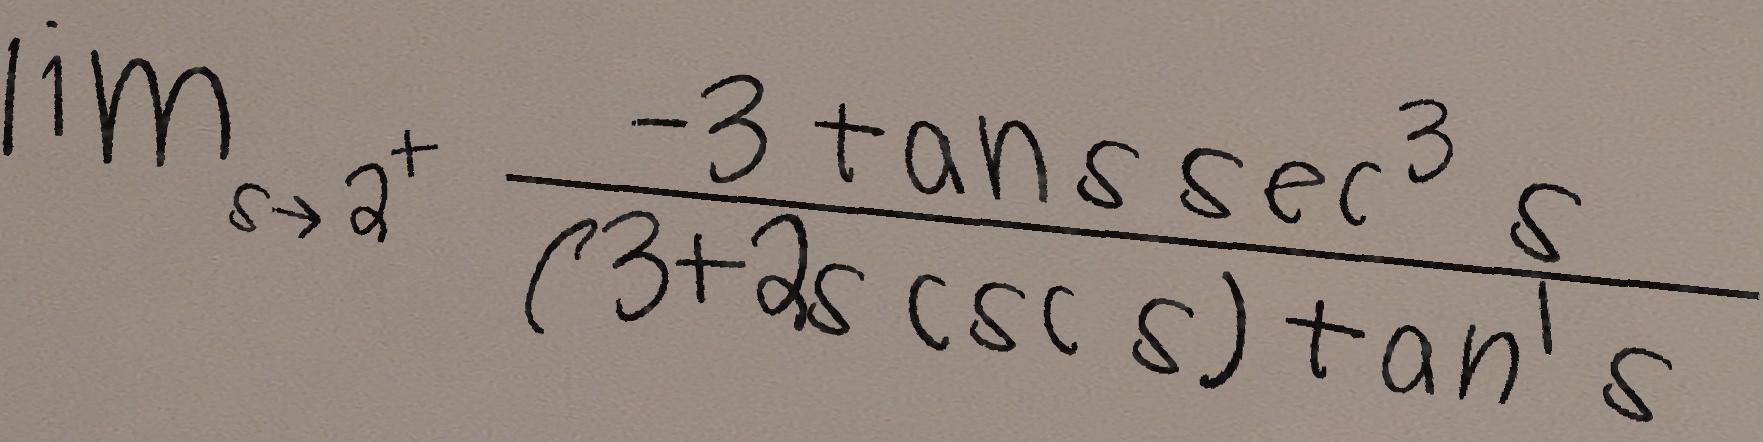 \lim_{s \to 2^+} \frac{-3 \tan s \sec^3 s}{(3+2s \csc s) \tan^1 s}